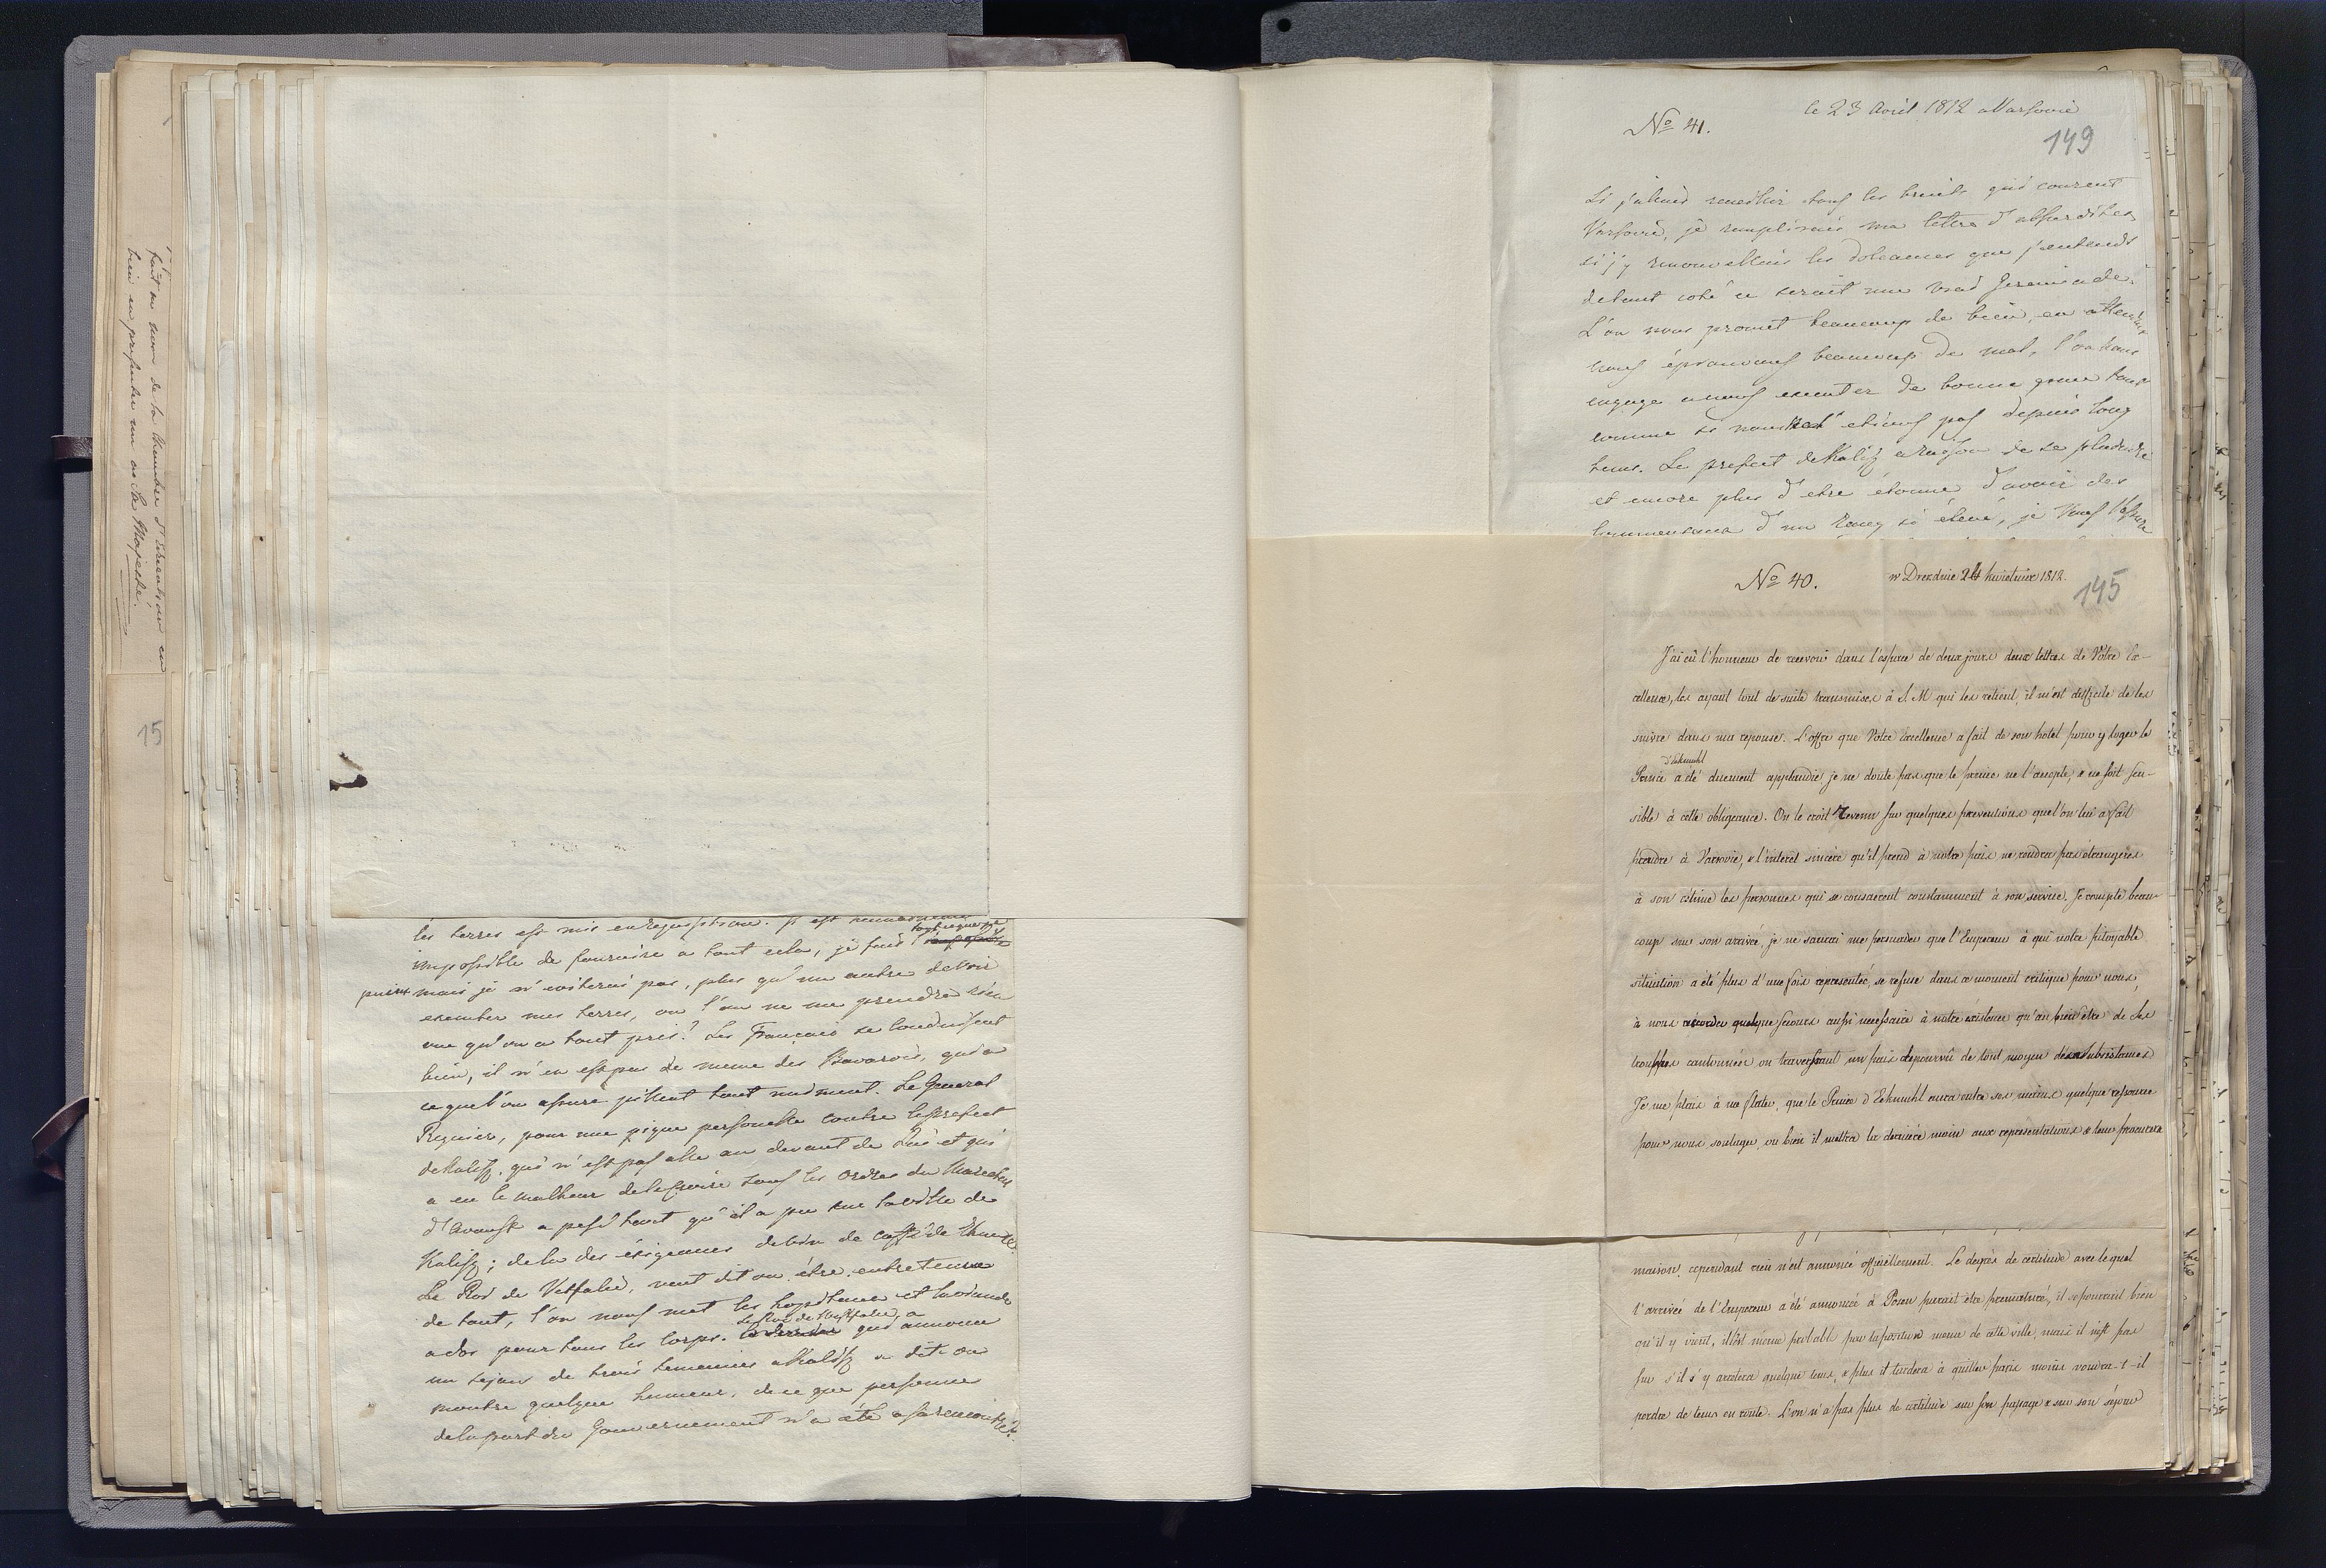 fait au nom de la chambre d'Execution, en
bien en presenter un à Sa Majesté.
15
les terres est mis en requisition. Il est
impossible de fournire a tout cela, je fais
mais je n'eviterai pas, plus qu'un autre de voir
puiser
executer mes terres, ou l'on ne me prendra rien
vue qu'on a tout pris? Les Français se conduisent
bien, il n'en est pas de meme des Bavarois, qui a
ce que l'on assure pillent tout uniment. Le General
Regnier, pour une pique personelle contre le prefect
de Kalisz, qui n'est pas allé au devant de Lui et qui
a eu le malheur de le suivre sous les ordres du Marechal
d'Avoust a pesé tant qu'il a pu sur la ville de
Kalisz; de la des éxigences de vin de caffé de
Le Roi de Vestfalie, veut dit on être entretenue
de tout, l'on nous met les hopitaux et la viande
Le Roi de Westfalie, a
a dos pour tous les corps. qui annonce
un sejour de trois semaines a Kalisz a dit-on
montre quelque humeur, de ce que personne
de la part du Gouvernement n'a été a sa rencontre.
No 41.
le 23 Avril 1812 a Varsovie
149
Si j'allais receuillir tous les bruits qui courent
Varsovie, je remplirais ma lettre d'absurdites
si j'y renouvellais les doleances que j'entends
de tout coté ce serait une vrai Jeremiade.
L'on nous promet beaucoup de bien, en attendant
nous éprouvons beaucoup de mal, l'on nous
engage a nous executer de bonne grace tout
comme si nous ne l'etions pas depuis long
tems. Le prefect de Kalisz a raison de se plaindre
et encore plus d'etre étonné d'avoir des
d'un rang si élevé, je Vous l'assure
No 40.
w Dreznie 24 kwietnia 1812.
145
J'ai eû l'honneur de recevoir dans l'espace de deux jours deux lettres de Votre Ex-
cellence, les ayant tout de suite transmises à S. M qui les retient, il m'est difficile de les
suivre dans ma reponse. L'offre que Votre Excellence a fait de son hôtel pour y loger le
d'Eckmuhl
Prince a été dûement applaudie je ne doute pas que le prince ne l'accepte, & ne soit sen-
sible à cette obligeance. On le croit revenu sur quelques preventions que l'on lui a fait
prendre à Varsovie, & l'interet sincère qu'il prend à notre païs ne rendra pas etrangeres
à son estime les personnes qui se consacrent constamment à son service. Je compte beau-
coup sur son arrivée, je ne saurai me persuader que l'Empereur à qui notre pitoyable
situation a été plus d'une fois representée, se refuse dans ce moment critique pour nous,
à nous accorder quelque secours aussi necessaire à notre existence qu'au bien être de Ses
trouppes cantonnées ou traversant un païs depourvû de tout moyen de subsistances
Je me plais à me flater, que le Prince d'Eckmuhl aura entre ses mains quelque ressource
pour nous soulager ou bien il mettra la derniere main aux representations & leur procurera
maison, cependant rien n'est annoncé officiellement. Le degrès de certitude avec lequel
l'arrivée de l'Empereur a été annoncée à Posen parait être prematuré, il se pourrait bien
qu'il y vient, il est meme probable par la position meme de cette ville, mais il n'est pas
sur s'il s'y arretera quelque tems, & plus il tardera à quitter paris moins voudra-t-il
perdre de tems en route. L'on n'a pas plus de certitude sur son passage & sur son séjour